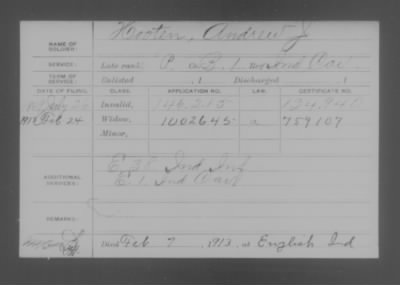 NAME OF SOLDIER: Hooten, Andrew J
SERVICE: Late rank, P. Co. B, 1 Reg't Ind Cav.
TERM OF SERVICE: Enlisted , 1 Discharged , 1
DATE OF FILING. CLASS. APPLICATION NO. LAW. CERTIFICATE NO.
July 26 Invalid, 146.215 124.940
Feb 24 Widow, 1002645 759107
Minor,
ADDITIONAL SERVICES: E 38 Ind Inf
E. 1 Ind Cav
REMARKS:
Died Feb 7, 1913, at English Ind